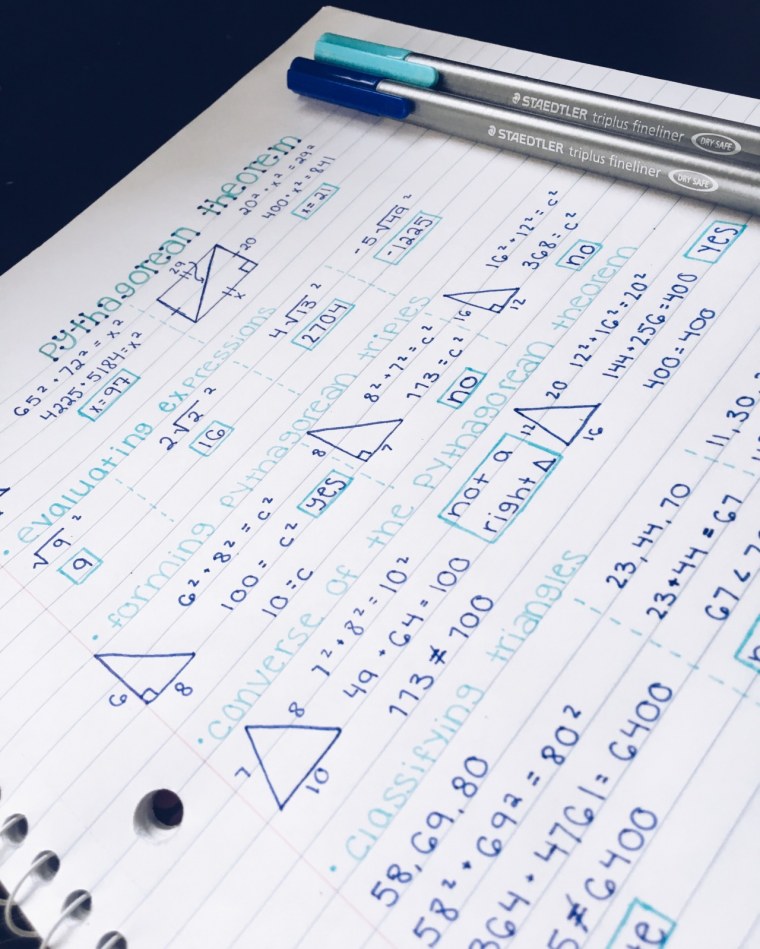 STAEDTLER triplus fineliner DRY SAFE
STAEDTLER triplus fineliner DRY SAFE
pythagorean theorem
65² + 72² = x²
4225+5184=x²
x=97
29
20
x
20² + x² = 29²
400+x²=841
x=21
• evaluating expressions
√9²
9
2√2²
16
4√13²
2704
-5√49²
-1225
• forming pythagorean triples
6
8
6² + 8² = c²
100 = c²
10=c
yes
8
7
8² + 7² = c²
113 = c²
no
16
12
16² + 12² = c²
368 = c²
no
• converse of the pythagorean theorem
7
8
10
7² + 8² = 10²
49 + 64 = 100
113 ≠ 100
not a
right Δ
12
20
16
12² + 16² = 20²
144 + 256 = 400
400 = 400
yes
• classifying triangles
58, 69, 80
58² + 69² = 80²
364 + 4761 = 6400
5 ≠ 6400
e
23, 44, 70
23+44 = 67
67 < 7
11, 30